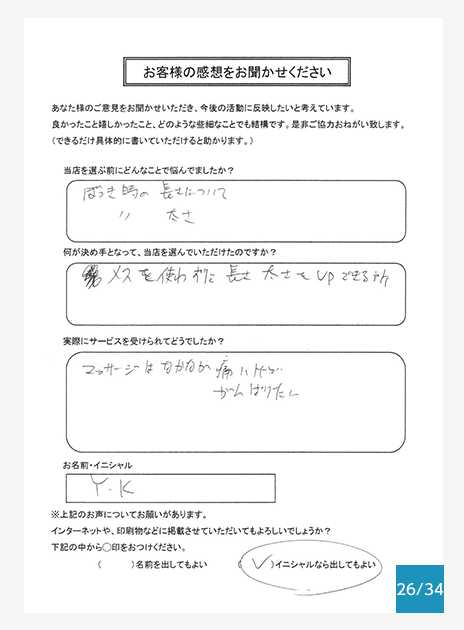 お客様の感想をお聞かせください
あなた様のご意見をお聞かせいただき、今後の活動に反映したいと考えています。
良かったこと嬉しかったこと、どのような些細なことでも結構です。是非ご協力おねがい致します。
（できるだけ具体的に書いていただけると助かります。）
当店を選ぶ前にどんなことで悩んでましたか？
ぼっき時の 長さについて
〃 太さ
何が決め手となって、当店を選んでいただけたのですか？
メスを使わずに 長さ 太さを UPできる所
実際にサービスを受けられてどうでしたか？
マッサージは なかなか 痛いけど…
がんばりたい
お名前・イニシャル
Y.K
※上記のお声についてお願いがあります。
インターネットや、印刷物などに掲載させていただいてもよろしいでしょうか？
下記の中から○印をおつけください。
（ ）名前を出してもよい （✓）イニシャルなら出してもよい
26/34